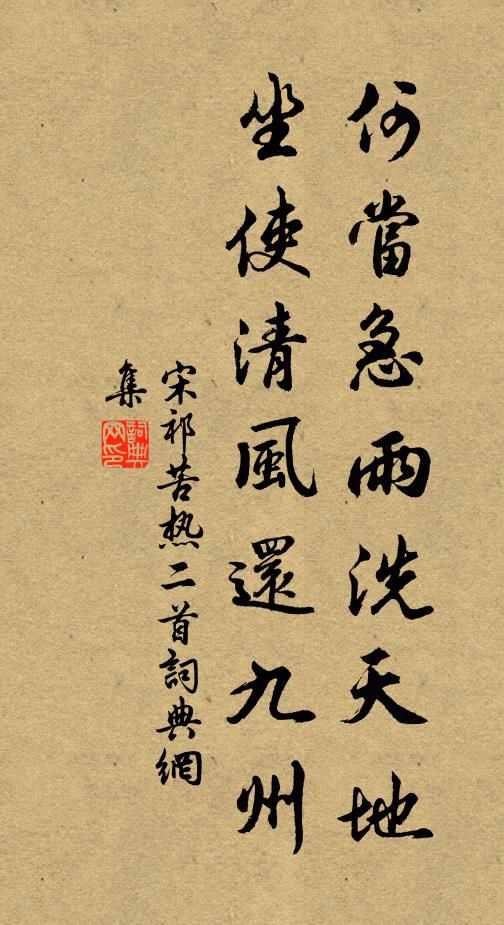 何當急雨洗天地
坐使清風還九州
宋祁苦热二首詞典網
集
詞典
网印